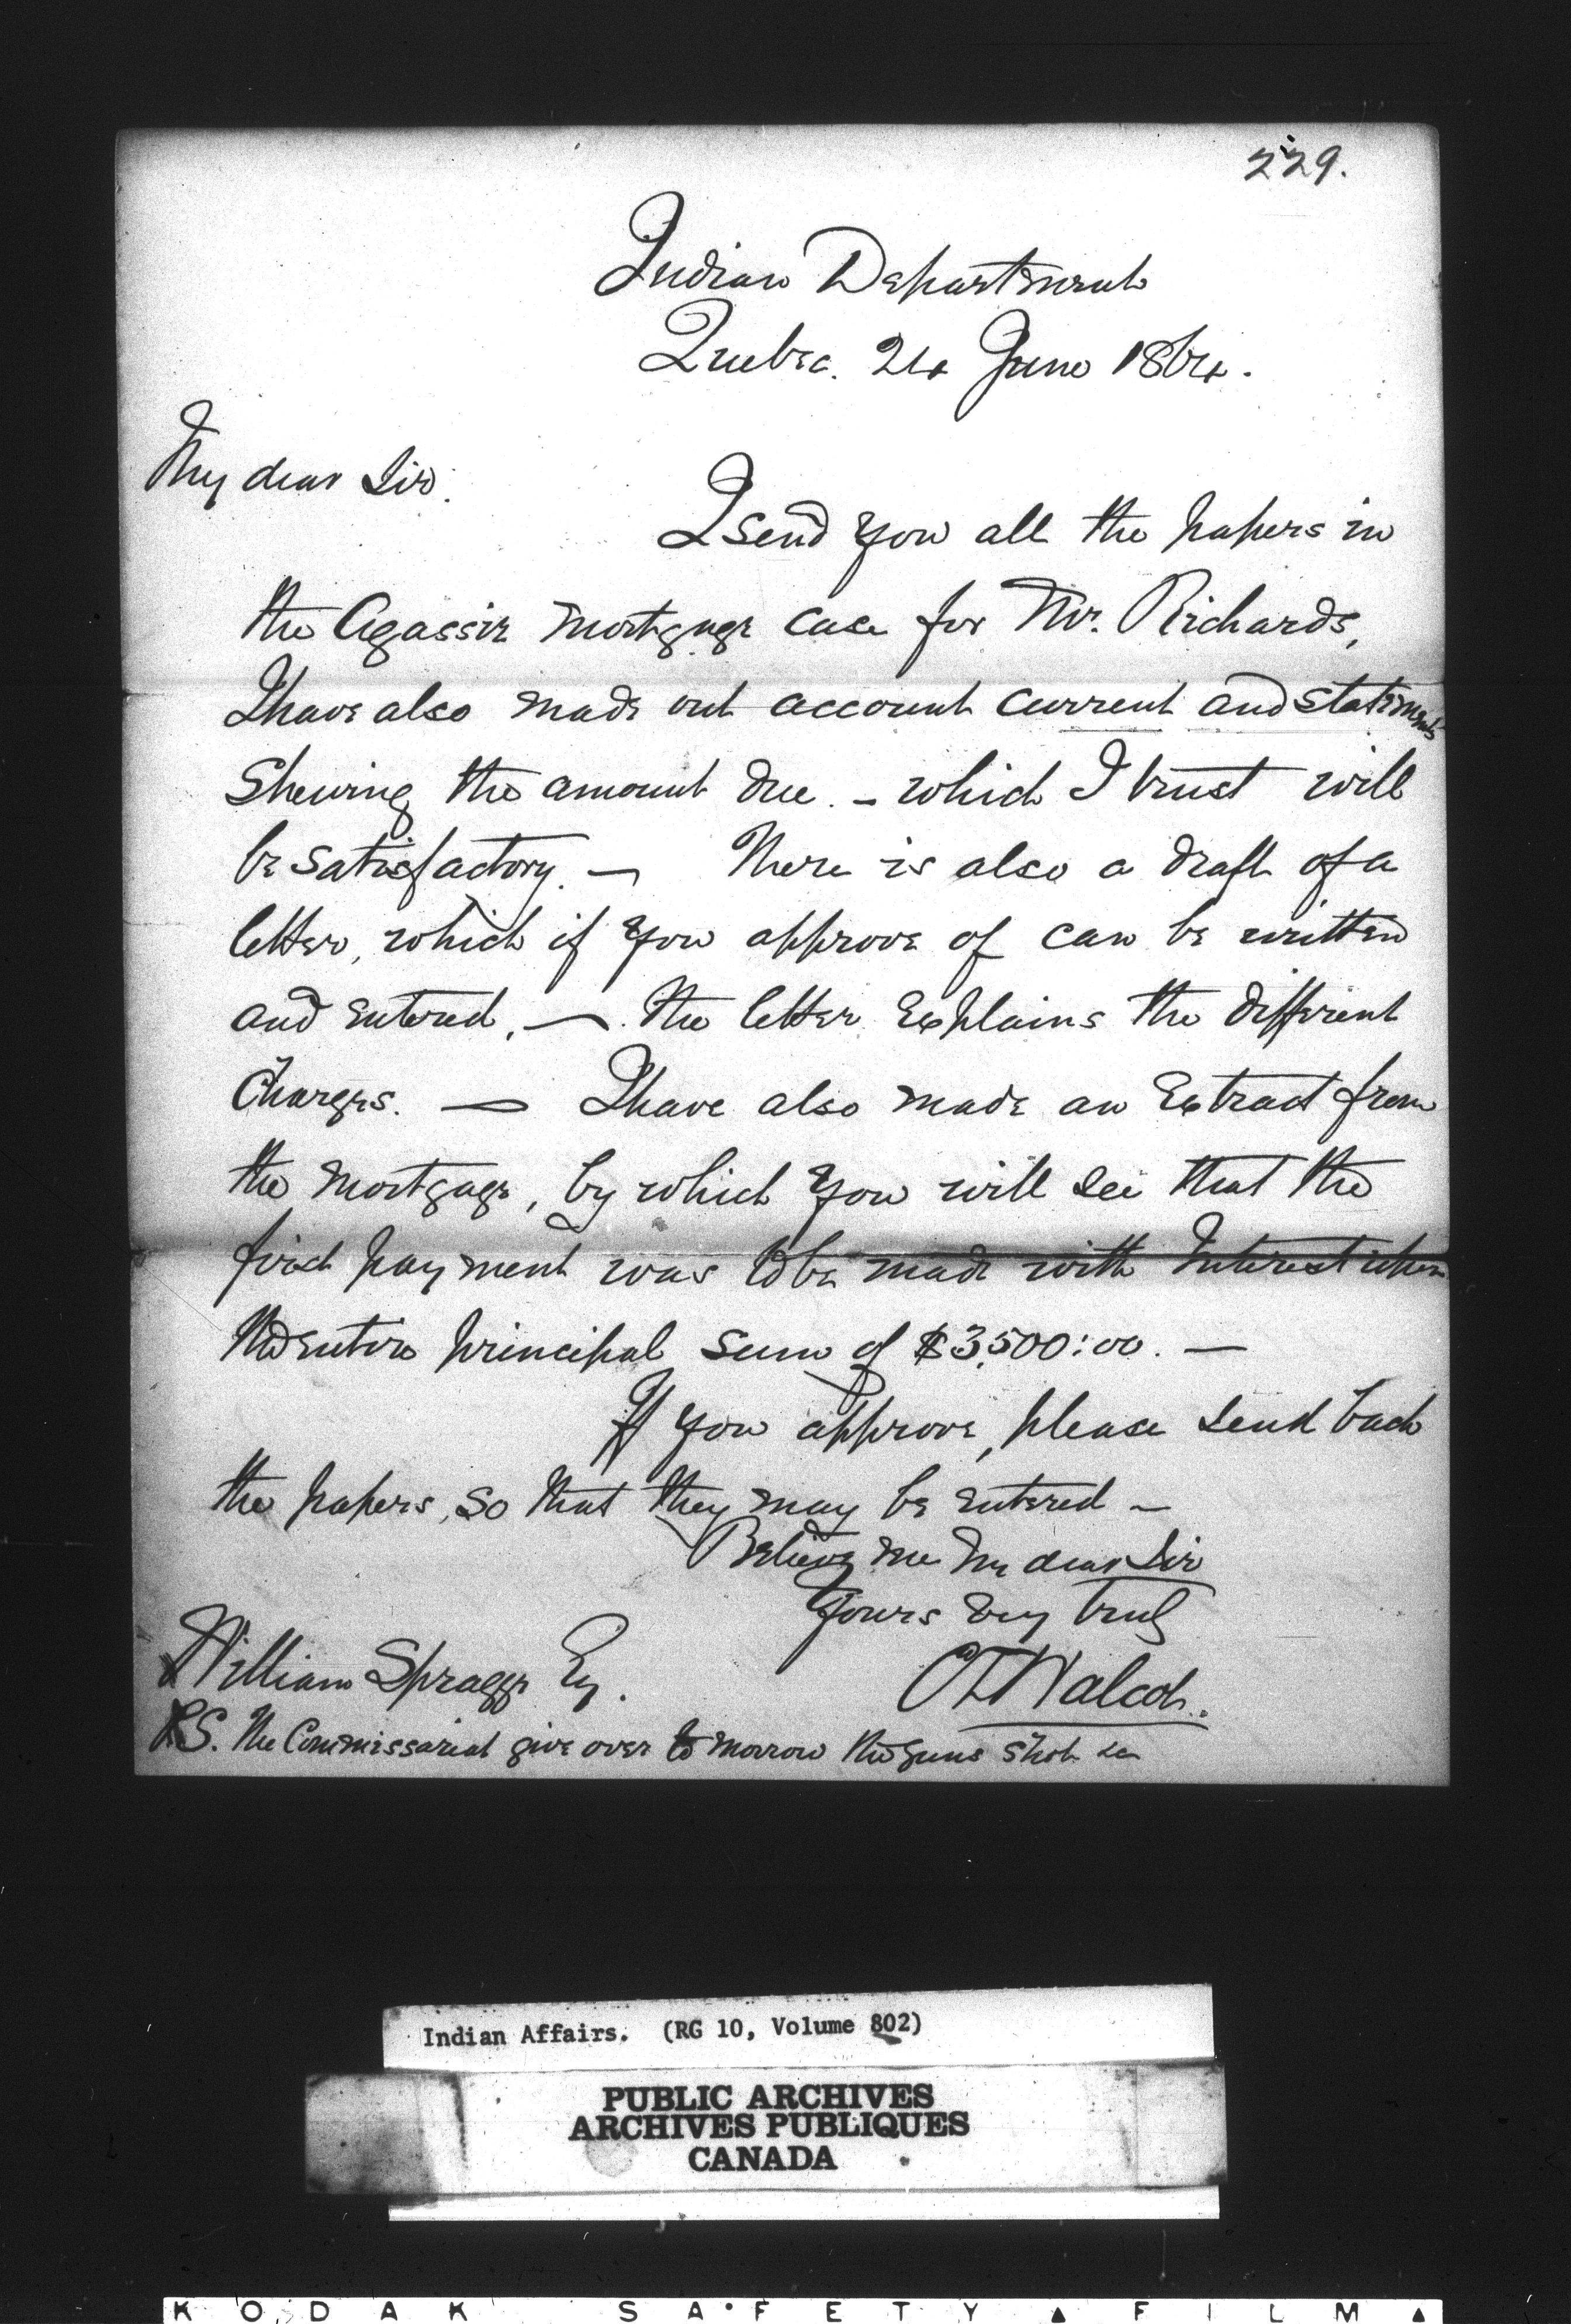 229.
Indian Department
Quebec. 24 June 1864.
My dear Sir.
I send you all the papers in
the Agassiz mortgage case for Mr. Richards,
I have also made out account current and statement
Shewing the amount due. - which I trust will
be satisfactory. — There is also a draft of a
letter, which if you approve of can be written
and entered. — the letter Explains the different
Charges. — I have also made an Extract from
the mortgage, by which you will see that the
first payment was to be made with Interest upon
the entire principal sum of $3,500:00. —
If you approve, please send back
the papers, so that they may be entered —
Believe me my dear Sir
Yours very truly
C T Walcot.
William Spragge Esq.
P.S. The Commissariat give over to morrow the guns shot &c
Indian Affairs. (RG 10, Volume 802)
PUBLIC ARCHIVES
ARCHIVES PUBLIQUES
CANADA
KODAK SAFETY ▲ FILM ▲